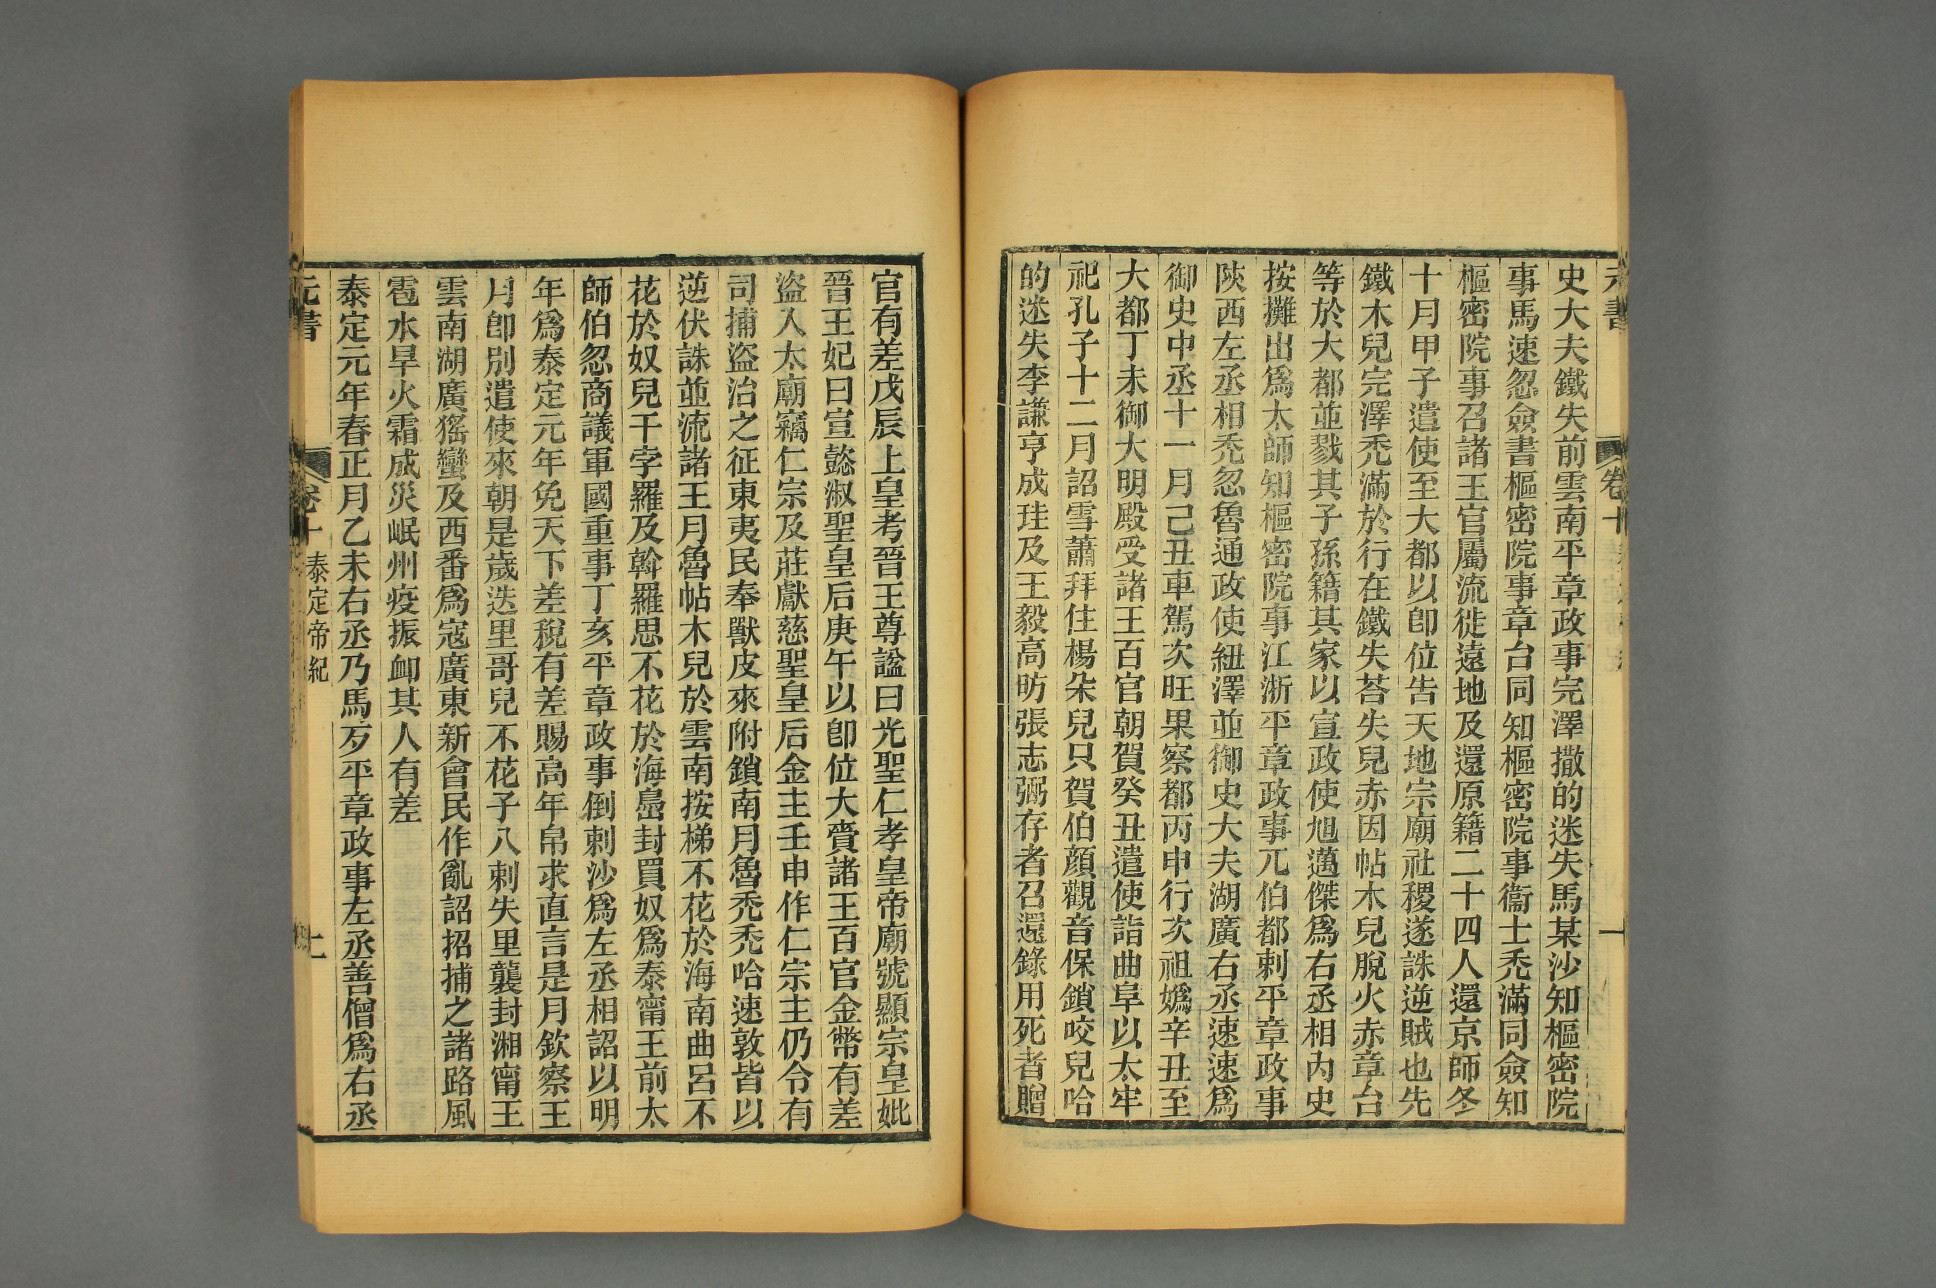 元書
卷十
一
史大夫鐵失前雲南平章政事完澤撒的迷失馬某沙知樞密院
事馬速忽僉書樞密院事章台同知樞密院事衞士禿滿同僉知
樞密院事召諸王官屬流徙遠地及還原籍二十四人還京師冬
十月甲子遣使至大都以卽位告天地宗廟社稷遂誅逆賊也先
鐵木兒完澤禿滿於行在鐵失荅失兒赤因帖木兒脫火赤章台
等於大都並戮其子孫籍其家以宣政使旭邁傑爲右丞相內史
按攤出爲太師知樞密院事江浙平章政事兀伯都剌平章政事
陝西左丞相禿忽魯通政使紐澤並御史大夫湖廣右丞速速爲
御史中丞十一月己丑車駕次旺果察都丙申行次祖嬀辛丑至
大都丁未御大明殿受諸王百官朝賀癸丑遣使詣曲阜以太牢
祀孔子十二月詔雪蕭拜住楊朵兒只賀伯顔觀音保鎖咬兒哈
的迷失李謙亨成珪及王毅高昉張志弼存者召還錄用死者贈
官有差戊辰上皇考晉王尊諡曰光聖仁孝皇帝廟號顯宗皇妣
晉王妃曰宣懿淑聖皇后庚午以卽位大賚諸王百官金幣有差
盜入太廟竊仁宗及莊獻慈聖皇后金主壬申作仁宗主仍令有
司捕盜治之征東夷民奉獸皮來附鎖南月魯禿禿哈速敦皆以
逆伏誅並流諸王月魯帖木兒於雲南按梯不花於海南曲呂不
花於奴兒干孛羅及斡羅思不花於海島封買奴爲泰甯王前太
師伯忽商議軍國重事丁亥平章政事倒剌沙爲左丞相詔以明
年爲泰定元年免天下差稅有差賜高年帛求直言是月欽察王
月卽別遣使來朝是歲迭里哥兒不花子八剌失里襲封湘甯王
雲南湖廣猺蠻及西番爲寇廣東新會民作亂詔招捕之諸路風
雹水旱火霜成災岷州疫振卹其人有差
泰定元年春正月乙未右丞乃馬歹平章政事左丞善僧爲右丞
元書
卷十
泰定帝紀